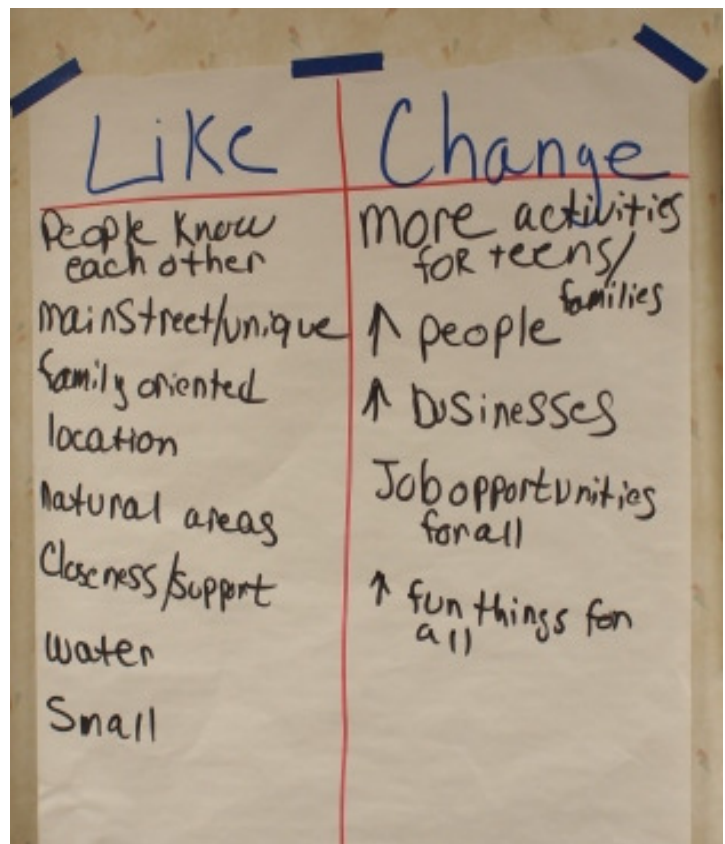 Like
People Know
each other
mainstreet/unique
family oriented
location
natural areas
Closeness/support
water
Small
Change
more activities
for teens/
families
↑ people
↑ businesses
Job opportunities
for all
↑ fun things for
all